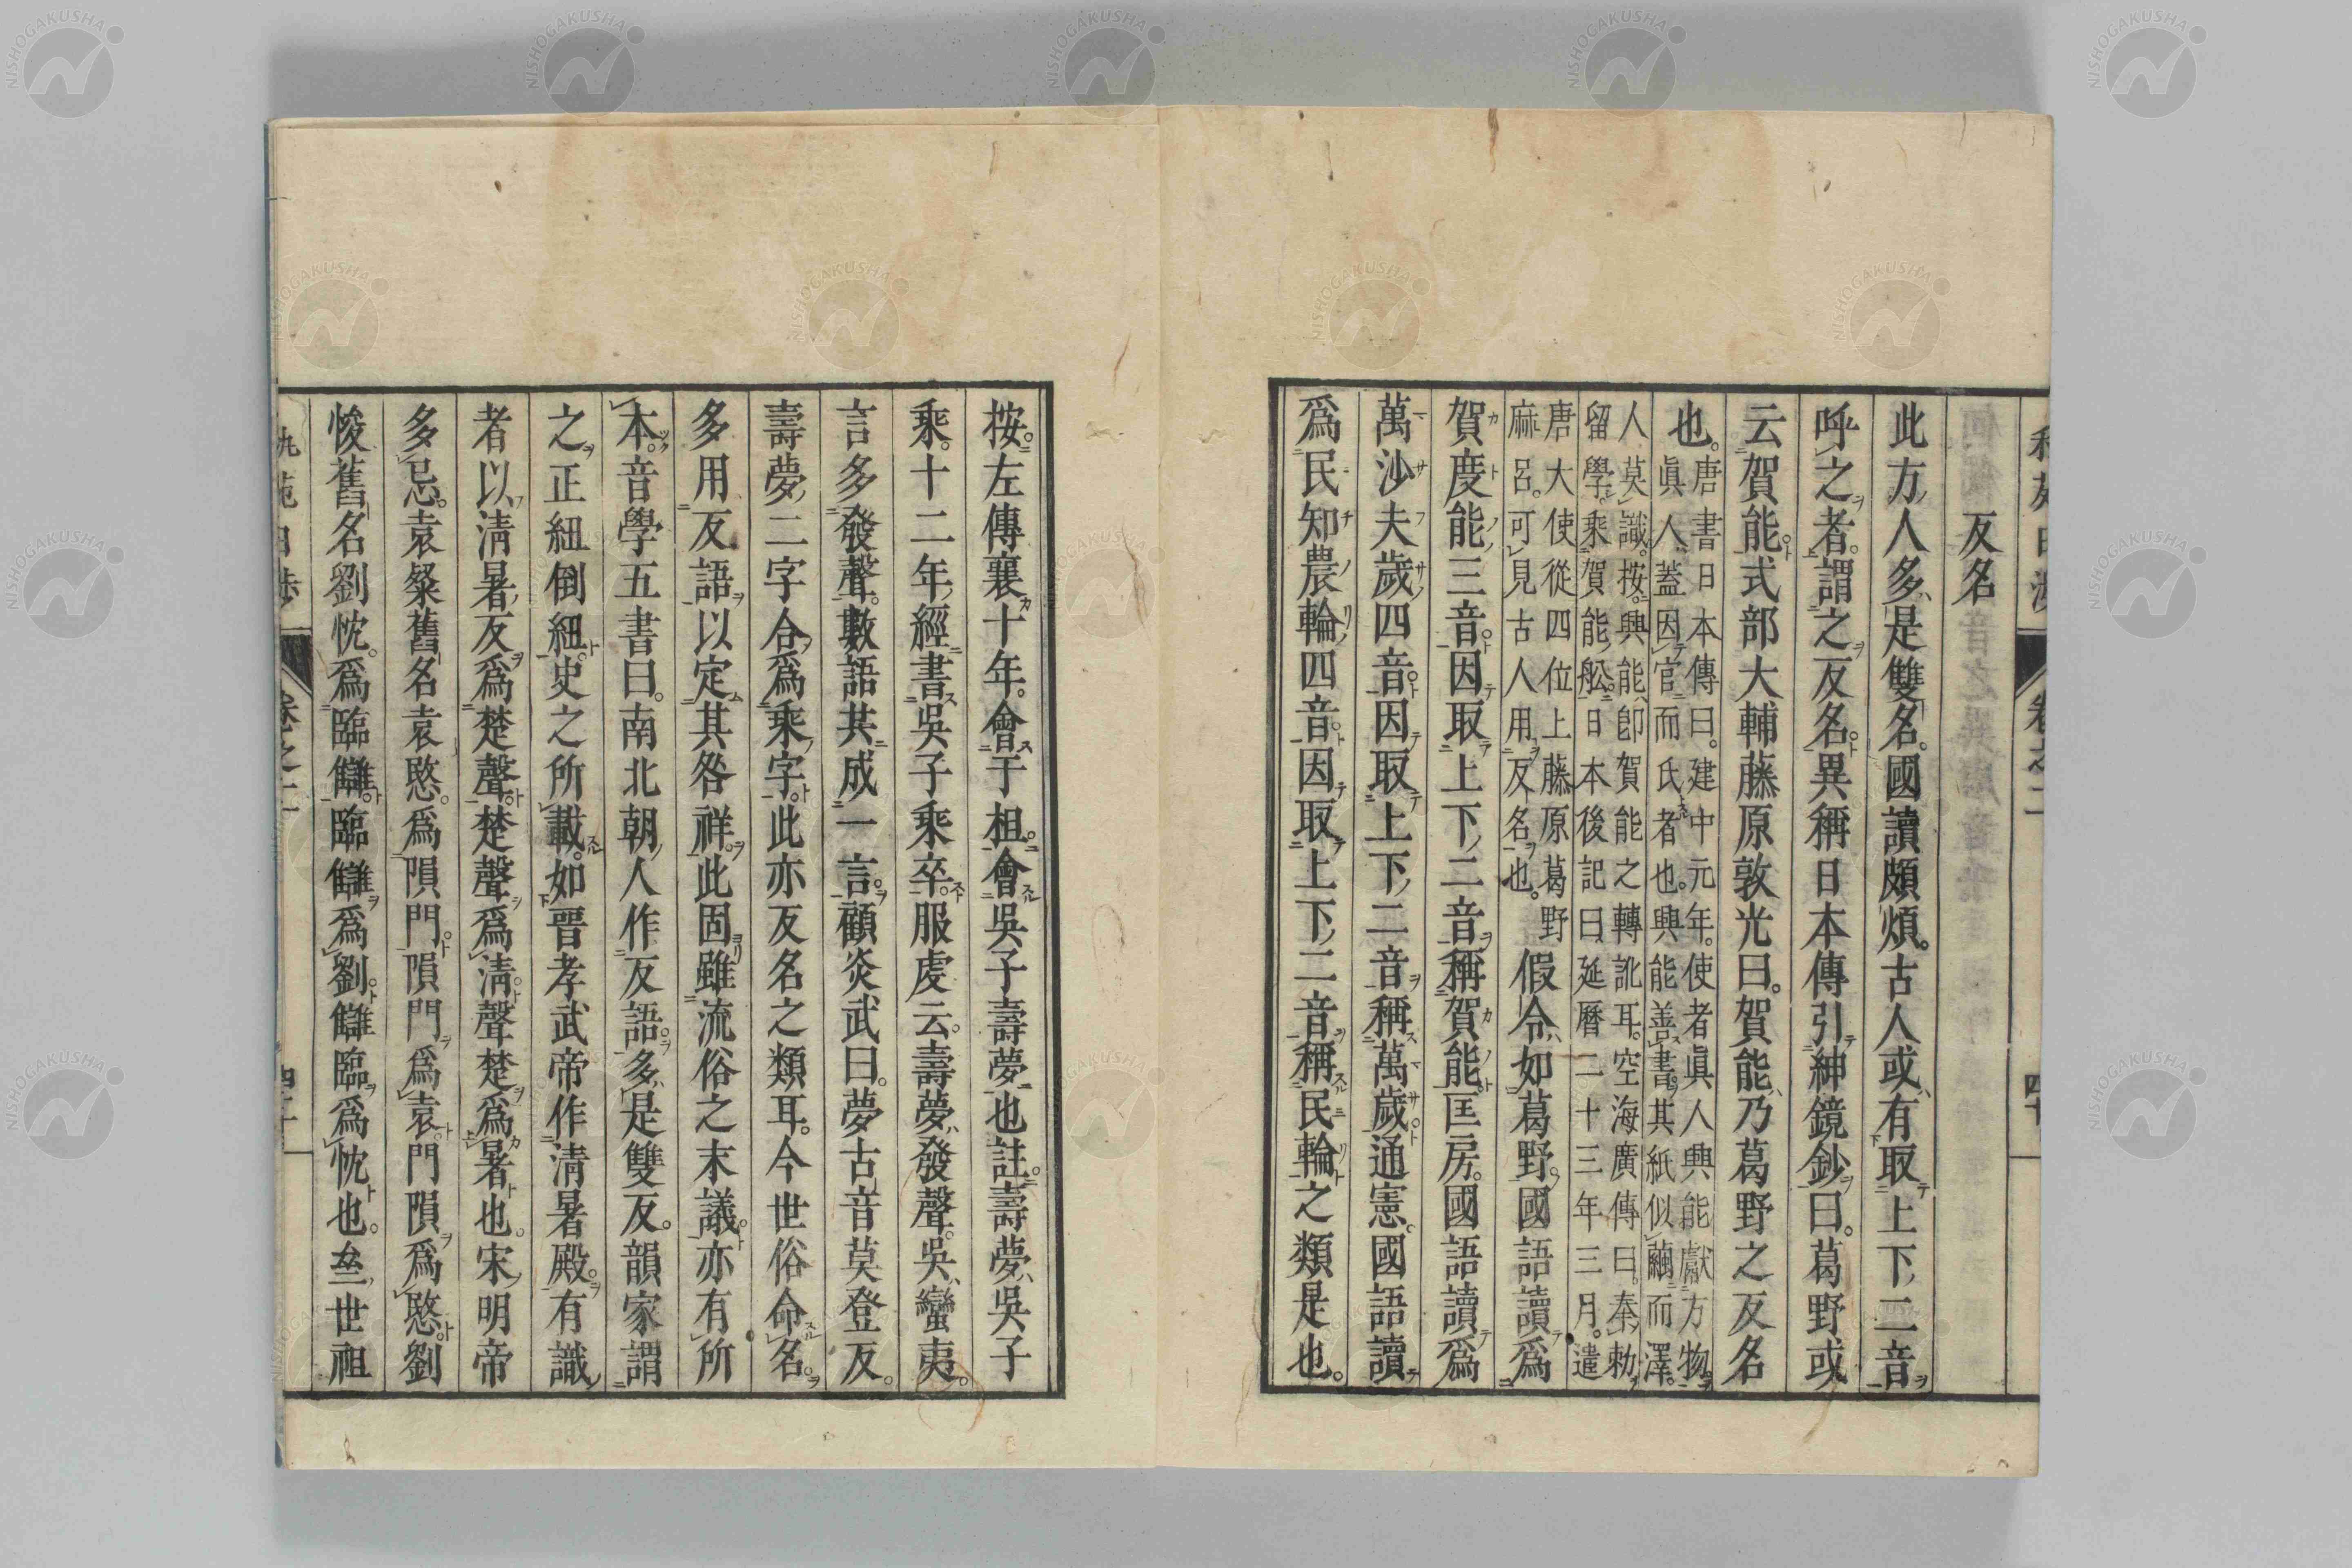 反名
此方人多是雙名。國讀頗煩。古人或有取上下二音
呼之者。謂之反名。異稱日本傳引紳鏡鈔曰。葛野或
云賀能式部大輔藤原敦光曰。賀能乃葛野之反名
也。唐書日本傳曰。建中元年。使者眞人興能獻方物。
眞人蓋因官而氏者也。興能善書。其紙似繭而澤。
人莫識。按興能卽賀能之轉訛耳。空海廣傳曰。奉勅
留學。乘賀能舩。日本後記曰延曆二十三年三月。遣
唐大使從四位上藤原葛野
麻呂。可見古人用反名也。
假令如葛野。國語讀爲
賀度能三音。因取上下二音稱賀能匡房。國語讀爲
萬沙夫歲四音。因取上下二音稱萬歲通憲。國語讀
爲民知農輪四音。因取上下二音稱民輪之類是也。
卷之二
四十
按。左傳襄十年。會于柤。會吳子壽夢也註。壽夢吳子
乘。十二年經書吳子乘卒。服虔云。壽夢發聲。吳蠻夷。
言多發聲。數語共成一言。顧炎武曰。夢古音莫登反。
壽夢二字合爲乘字。此亦反名之類耳。今世俗命名。
多用反語以定其咎祥。此固雖流俗之末議。亦有所
本。音學五書曰。南北朝人作反語。多是雙反。韻家謂
之正紐倒紐。史之所載。如晉孝武帝作淸暑殿。有識
者以淸暑反爲楚聲。楚聲爲淸。聲楚爲暑也。宋明帝
多忌。袁粲舊名袁愍。爲隕門。隕門爲袁。門隕爲愍。劉
悛舊名劉忱。爲臨讎。臨讎爲劉。讎臨爲忱也。叁世祖
卷之二